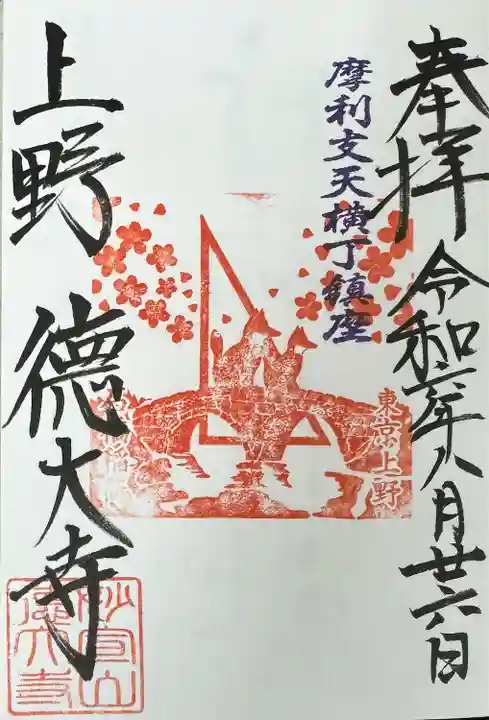 奉拝 令和六年八月廿六日
摩利支天横丁鎮座
東京上野
上野 德大寺
妙宣山
德大寺